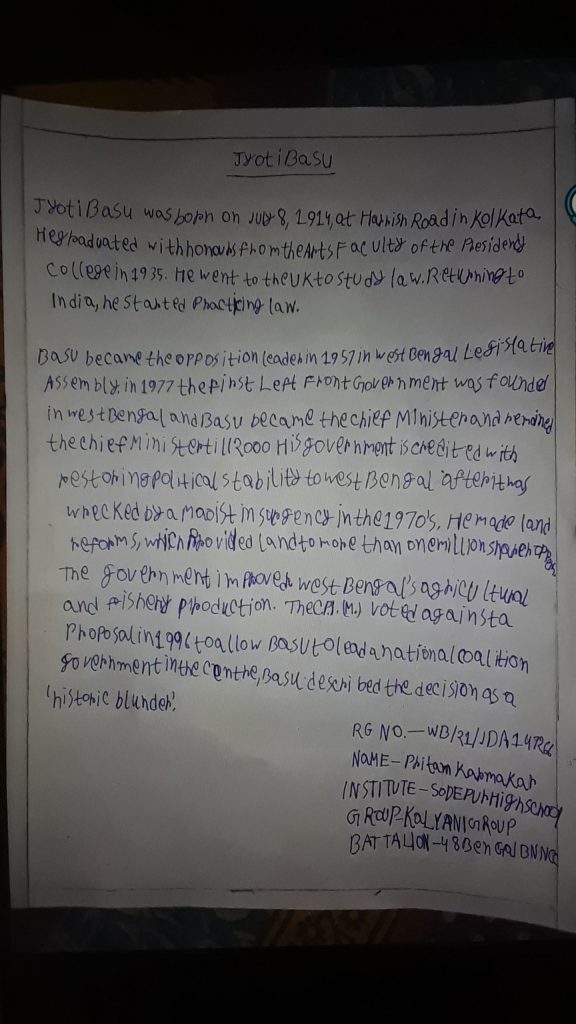 Jyoti Basu
Jyoti Basu was born on July 8, 1914, at Harrish Road in Kolkata.
He graduated with honours from the Arts Faculty of the Presidency
College in 1935. He went to the UK to study law. Returning to
India, he started Practicing law.
Basu became the opposition leader in 1957 in West Bengal Legislative
Assembly. in 1977 the first Left Front Government was founded
in West Bengal and Basu became the chief Minister and remained
the chief Minister till 2000 His government is credited with
restoring political stability to West Bengal after it was
wrecked by a maoist insurgency in the 1970's. He made land
reforms, which Provided land to more than one million
The government improved West Bengal's agricultural
and fishery production. The CPI.(M.) voted against a
Proposal in 1996 to allow Basu to lead a national coalition
government in the centre, Basu described the decision as a
'historic blunder'.
RG NO.-WB/21/JDA
NAME- Pritam Karmakar
INSTITUTE-SODEPUR High School
GROUP-KALYANI GROUP
BATTALION-48 Bengal BN NCC